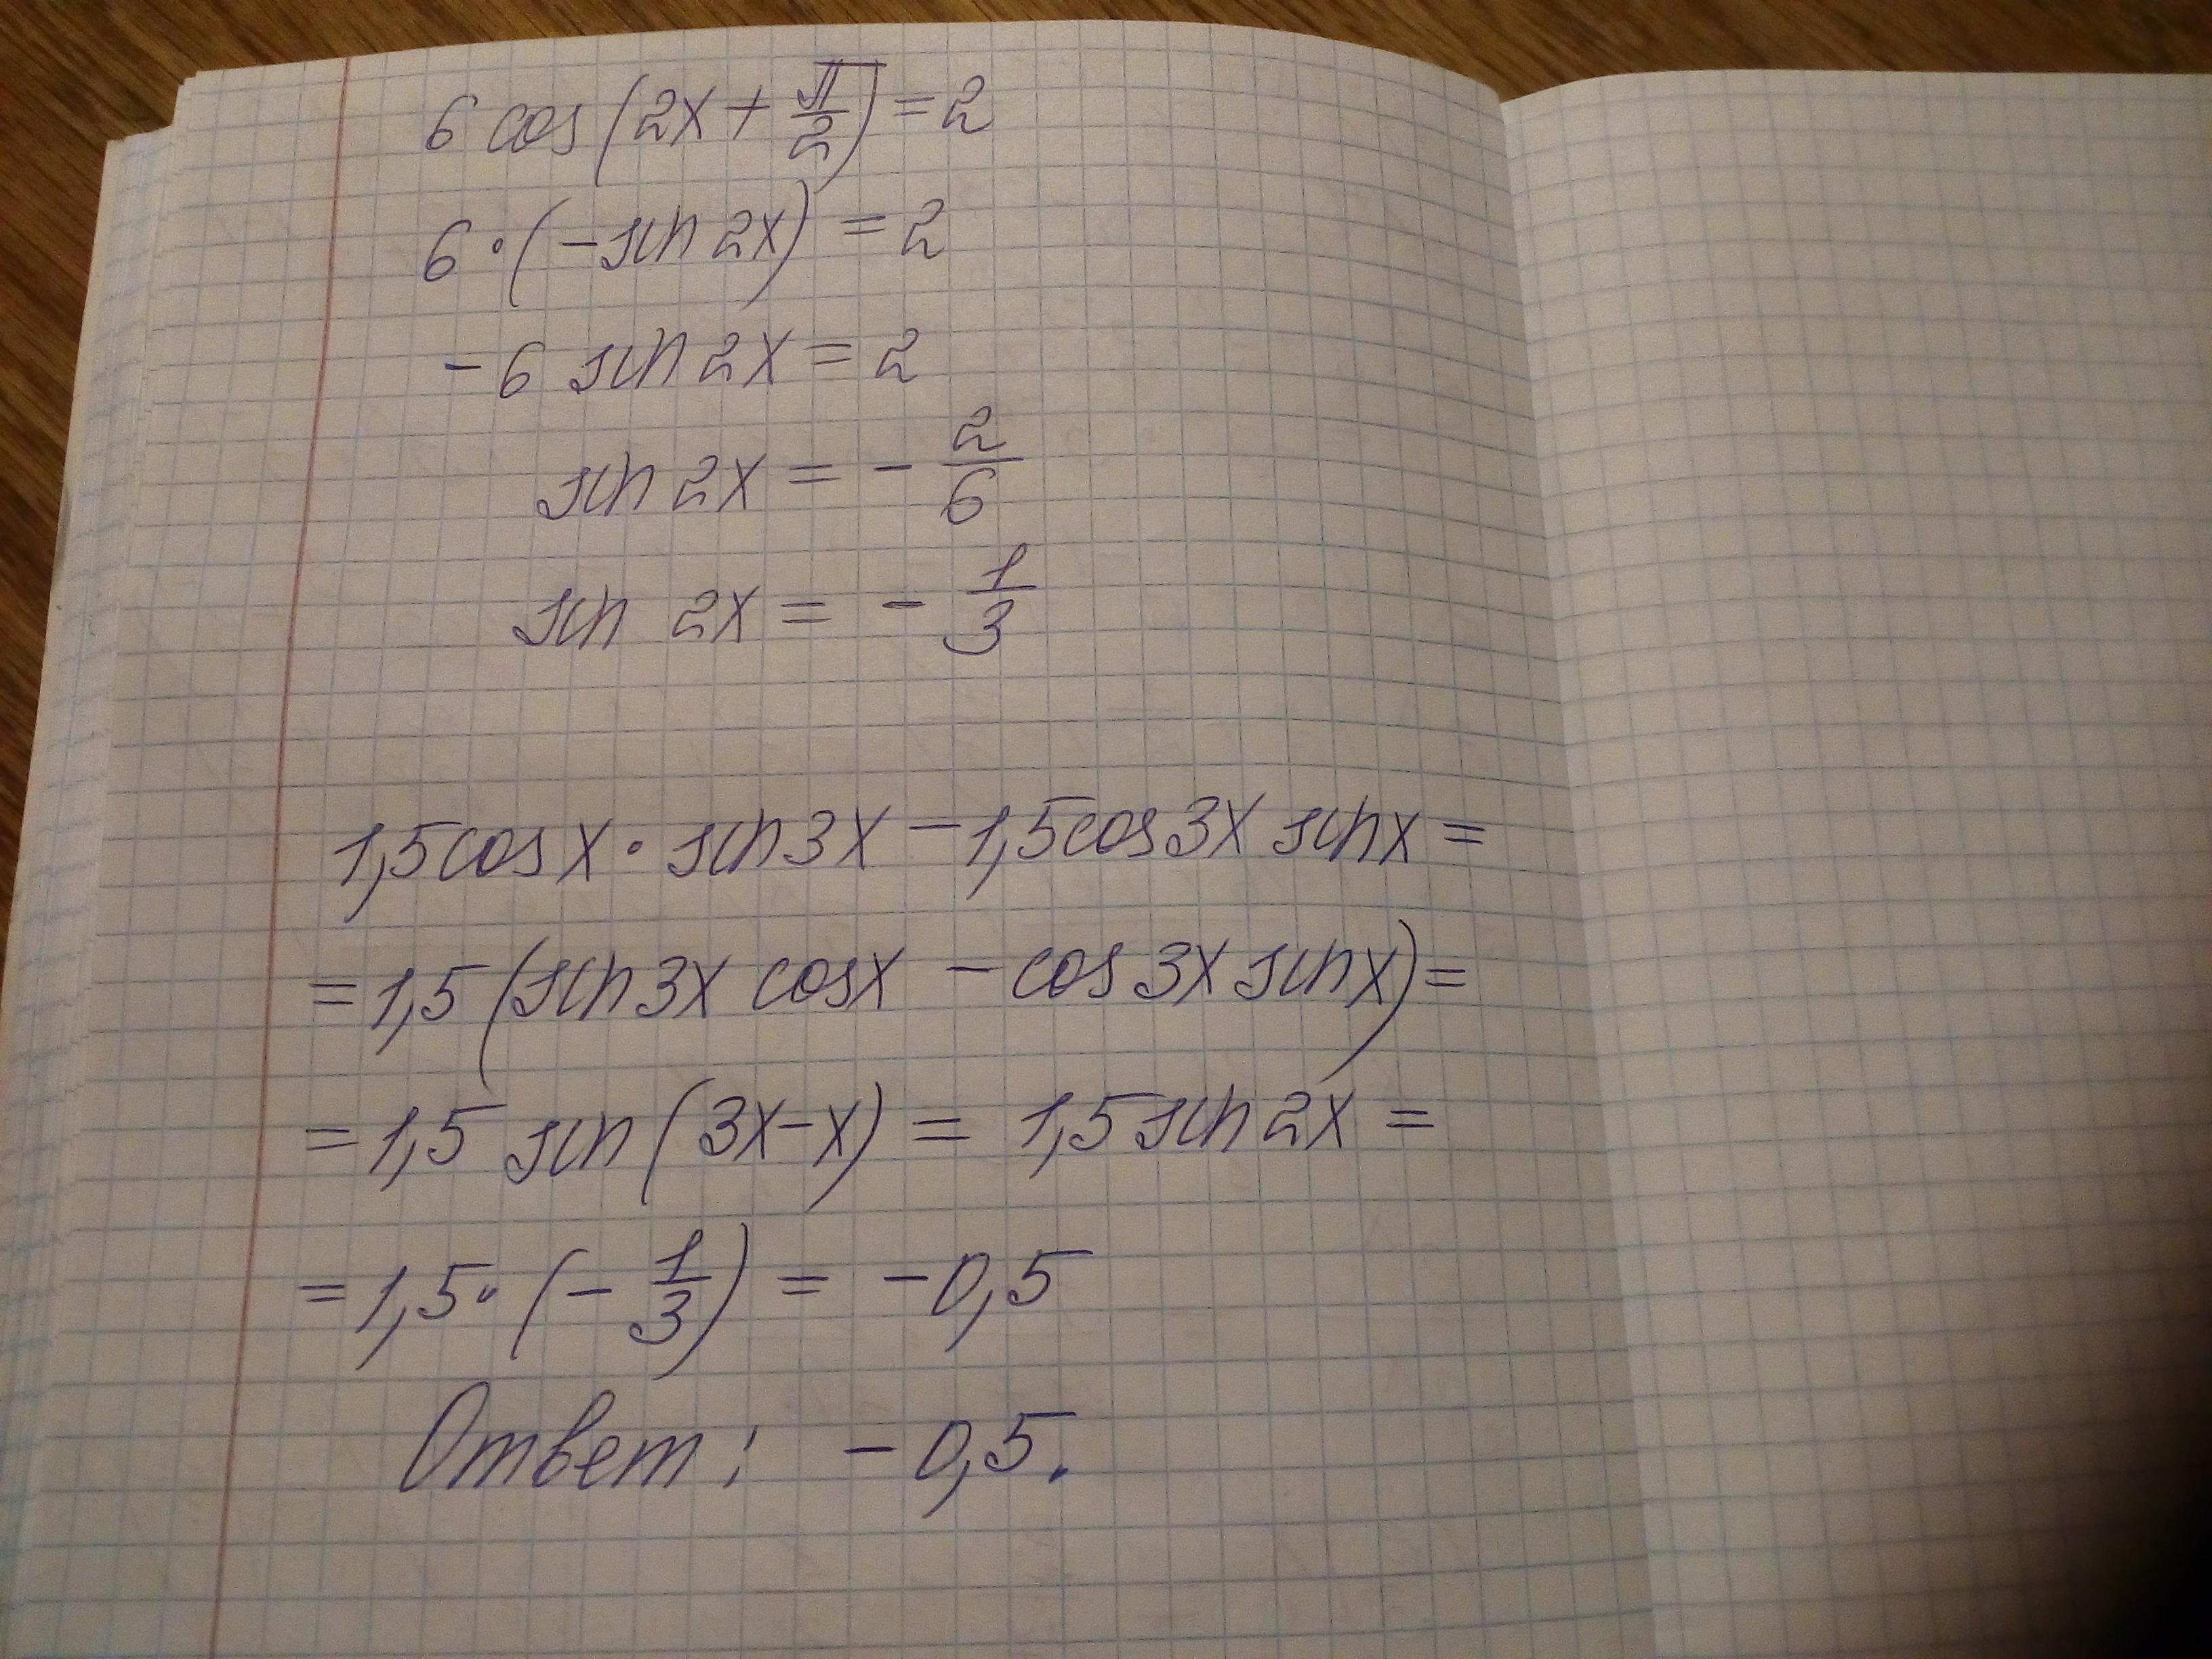 6 cos(2x + π/2) = 2
6·(-sin 2x) = 2
-6 sin 2x = 2
sin 2x = - 2/6
sin 2x = - 1/3
1,5cosx · sin3x - 1,5cos3x sinx =
= 1,5(sin3x cosx - cos3x sinx) =
= 1,5 sin(3x-x) = 1,5sin2x =
= 1,5·(- 1/3) = -0,5
Ответ: -0,5.